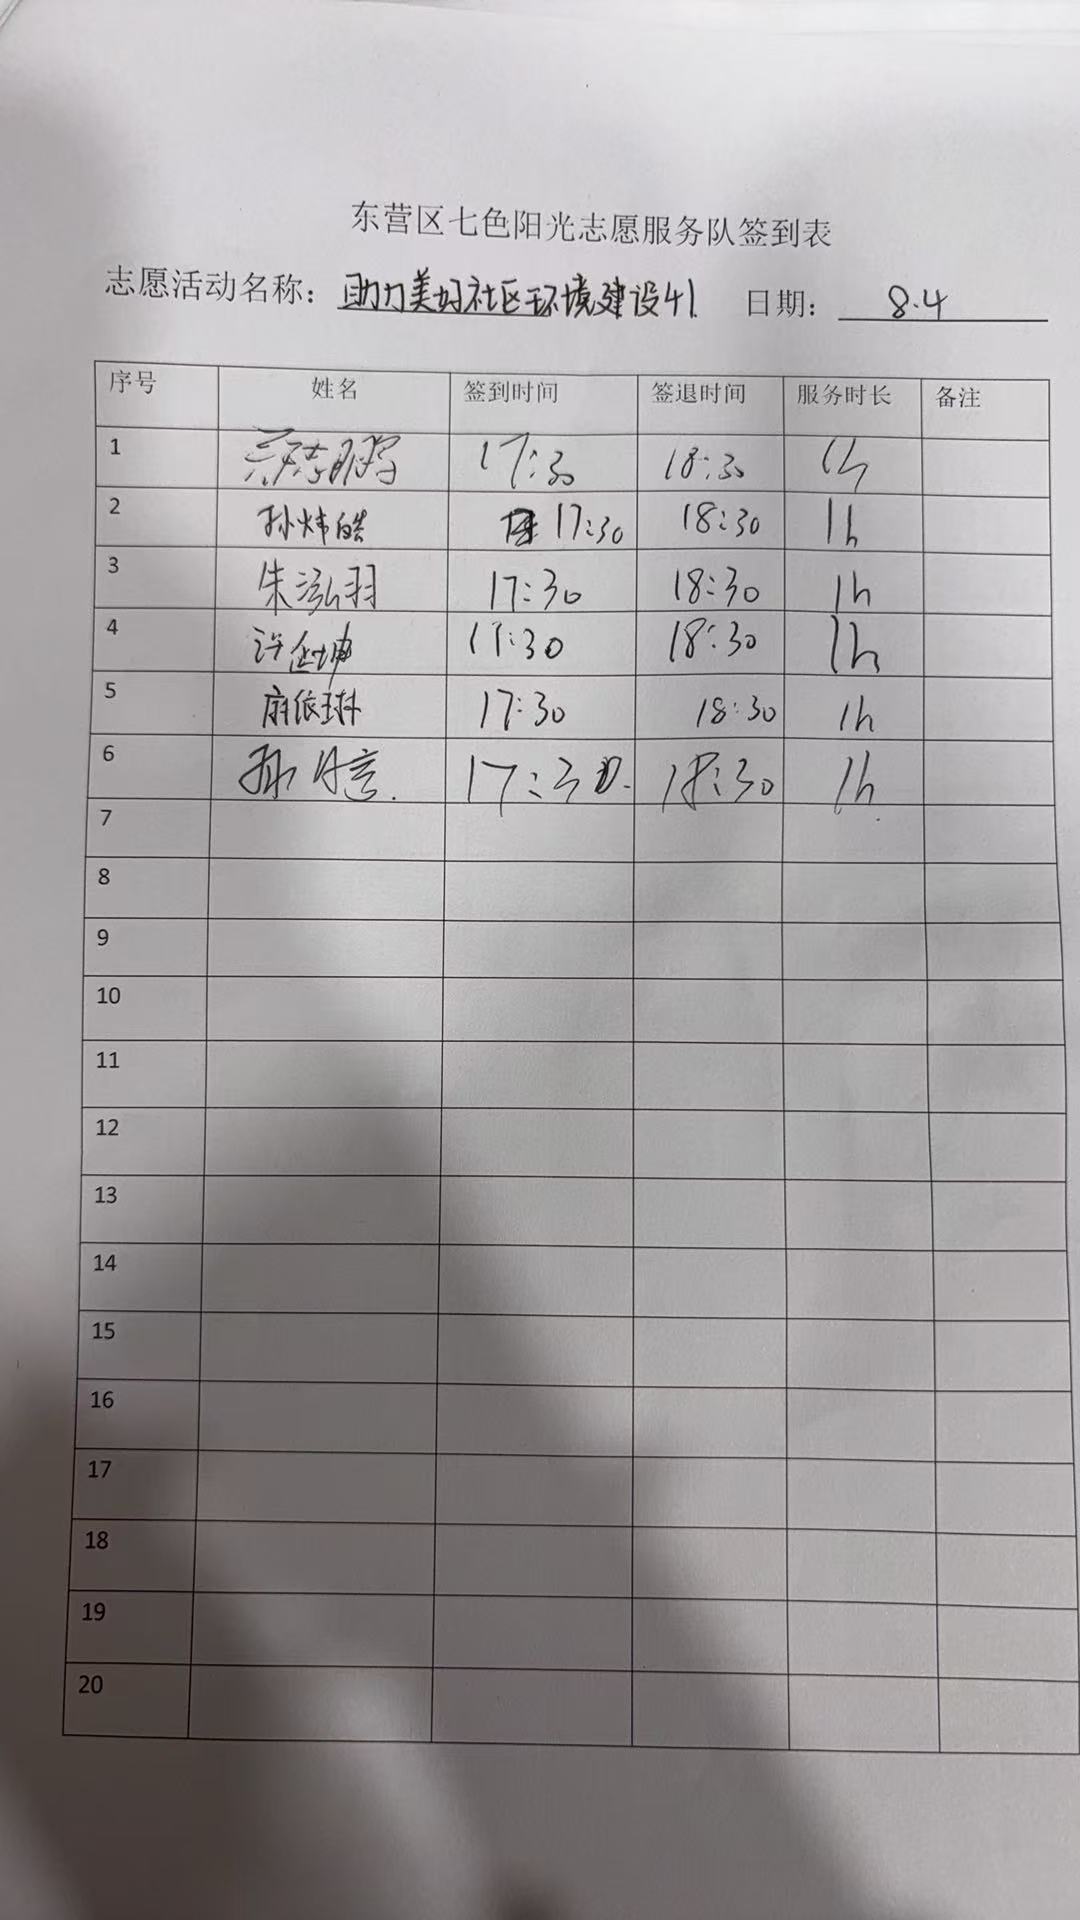 东营区七色阳光志愿服务队签到表
志愿活动名称：助力美好社区环境建设41 日期：8.4
序号 姓名 签到时间 签退时间 服务时长 备注
1 17:30 18:30 1h
2 孙炜皓 17:30 18:30 1h
3 朱泓羽 17:30 18:30 1h
4 许 17:30 18:30 1h
5 麻依琳 17:30 18:30 1h
6 17:30 18:30 1h
7
8
9
10
11
12
13
14
15
16
17
18
19
20